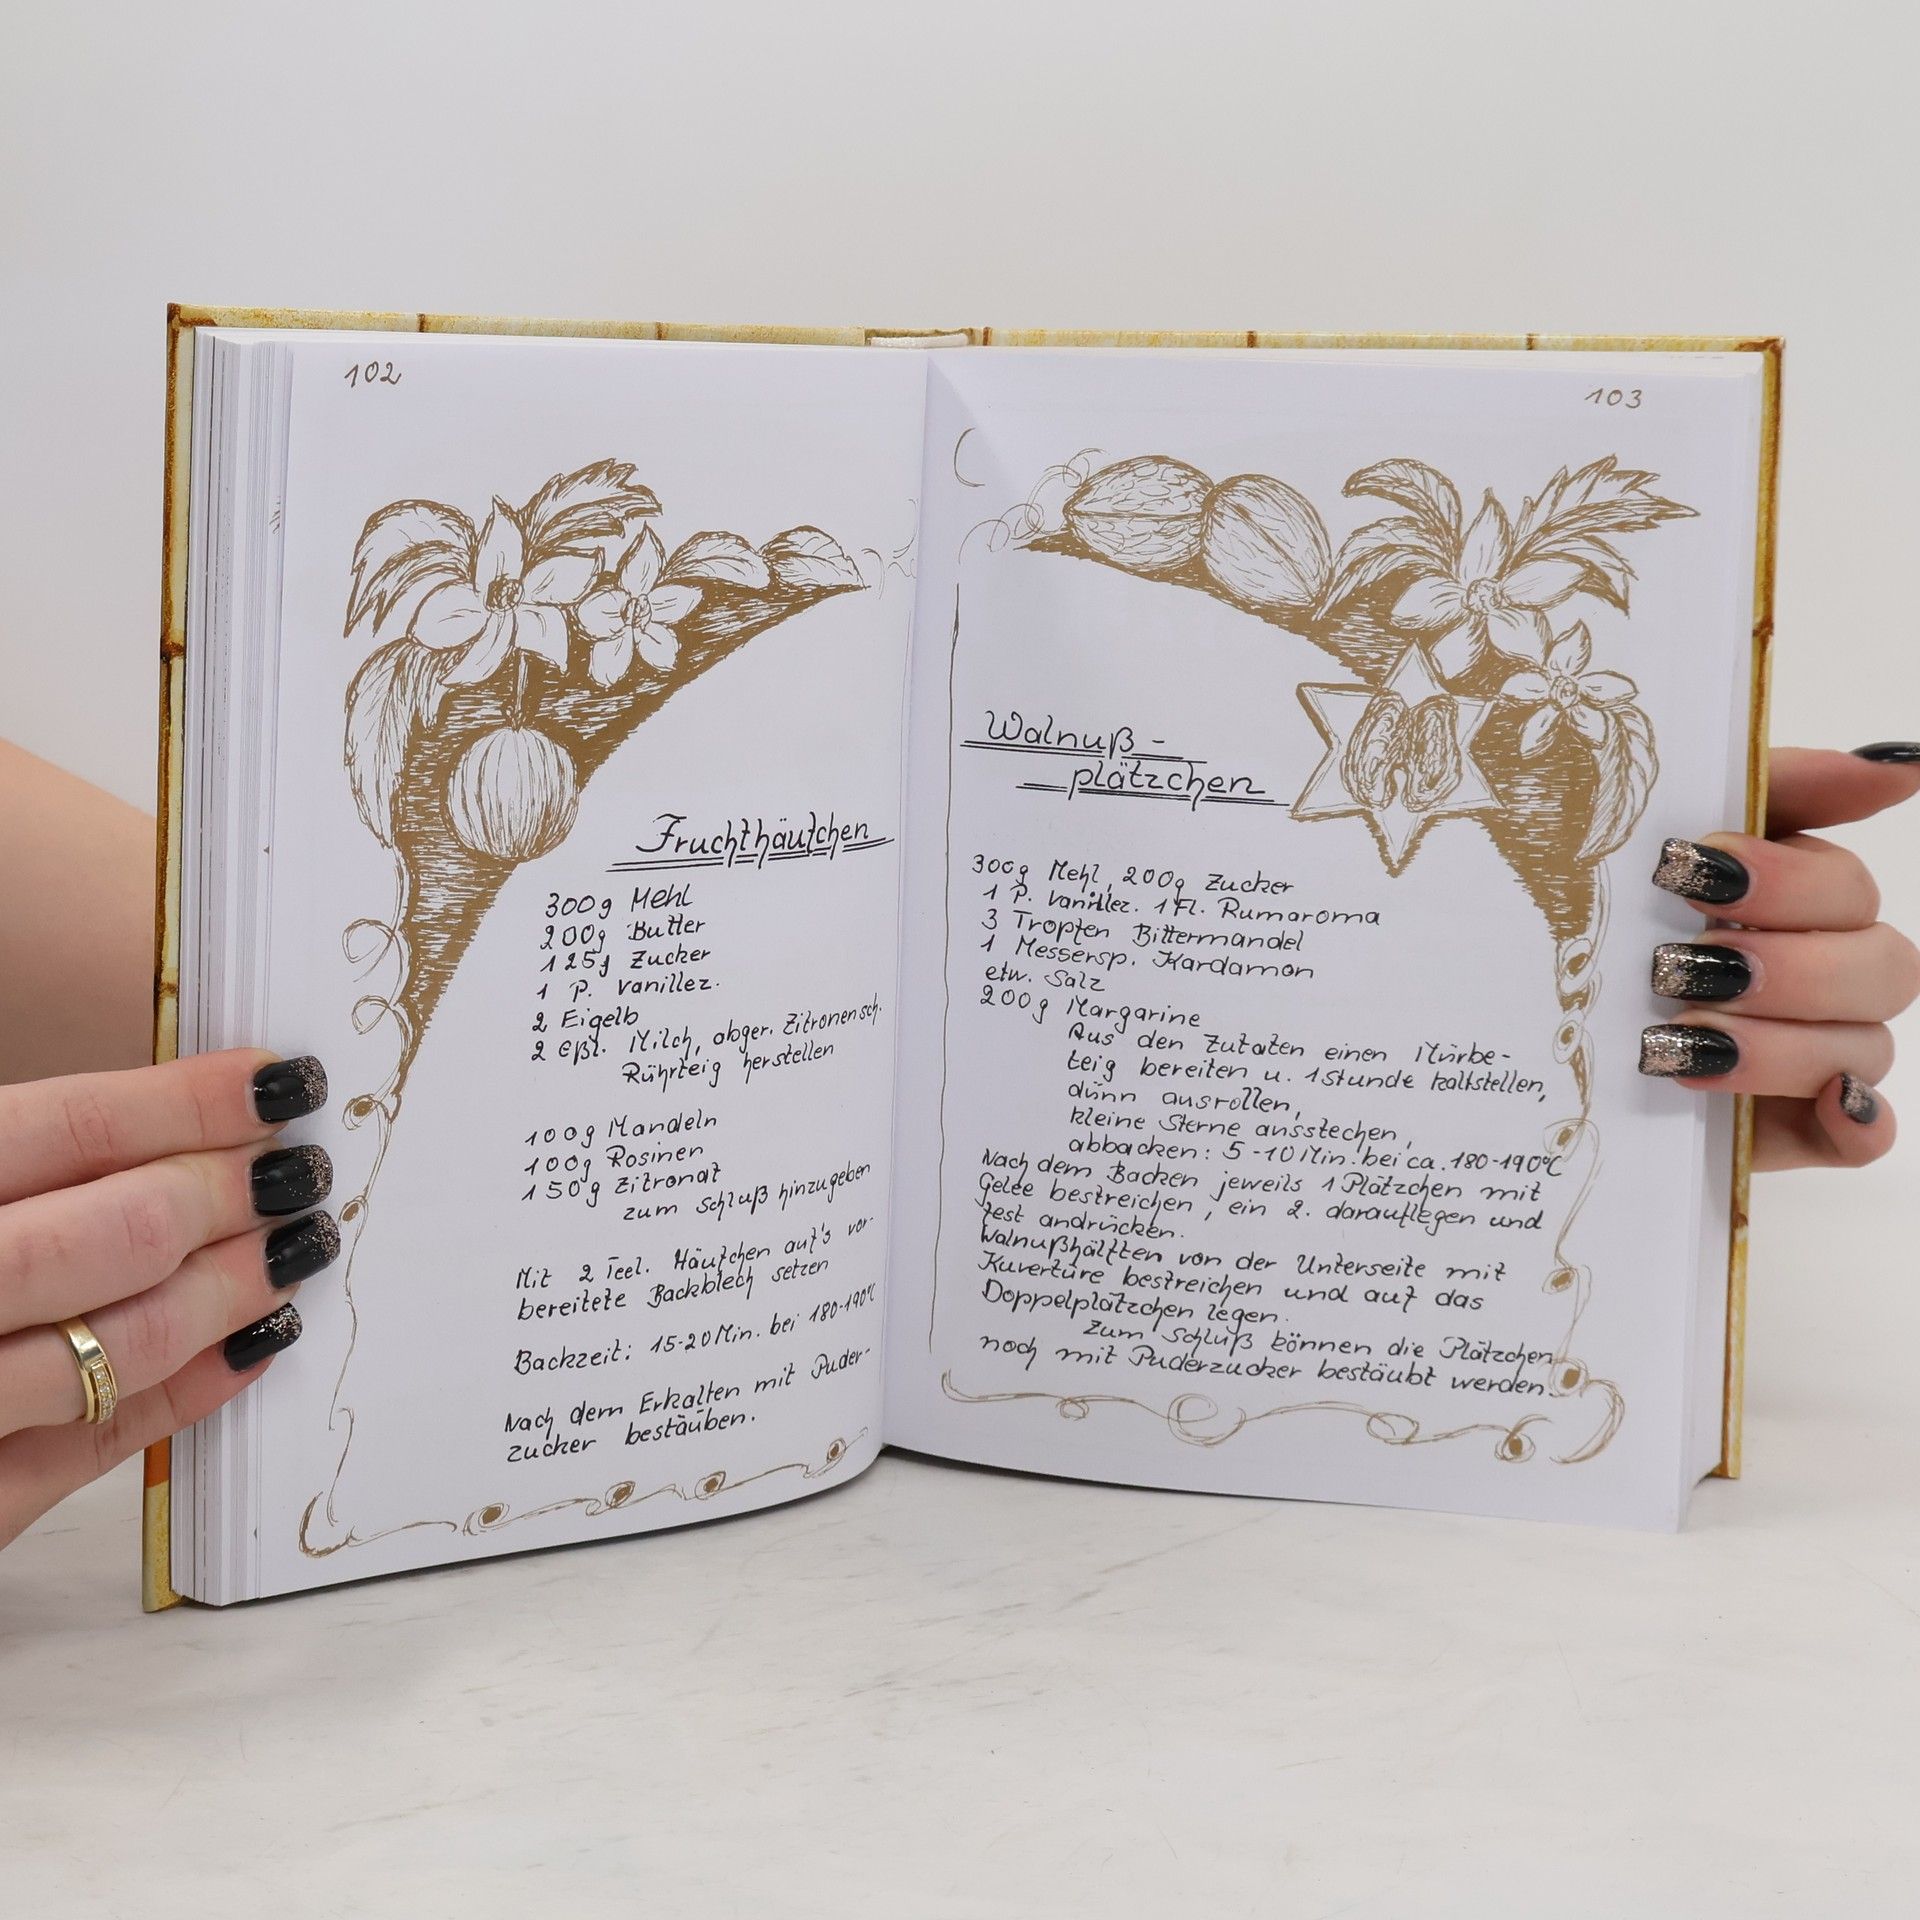 102
Fruchthäufchen
300g Mehl
200g Butter
125g Zucker
1 P. Vanillez.
2 Eigelb
2 Eßl. Milch, abger. Zitronensch.
Rührteig herstellen
100g Mandeln
100g Rosinen
150g Zitronat
zum Schluß hinzugeben
Mit 2 Teel. Häufchen auf's vor-
bereitete Backblech setzen
Backzeit: 15-20 Min. bei 180-190°C
Nach dem Erkalten mit Puder-
zucker bestäuben.
103
Walnuß-
plätzchen
300g Mehl, 200g Zucker
1 P. Vanillez. 1 Fl. Rumaroma
3 Tropfen Bittermandel
1 Messersp. Kardamon
etw. Salz
200g Margarine
Aus den Zutaten einen Mürbe-
teig bereiten u. 1 Stunde kaltstellen,
dünn ausrollen,
kleine Sterne ausstechen,
abbacken: 5-10 Min. bei ca. 180-190°C
Nach dem Backen jeweils 1 Plätzchen mit
Gelee bestreichen, ein 2. darauflegen und
fest andrücken.
Walnußhälften von der Unterseite mit
Kuvertüre bestreichen und auf das
Doppelplätzchen legen.
Zum Schluß können die Plätzchen
noch mit Puderzucker bestäubt werden.